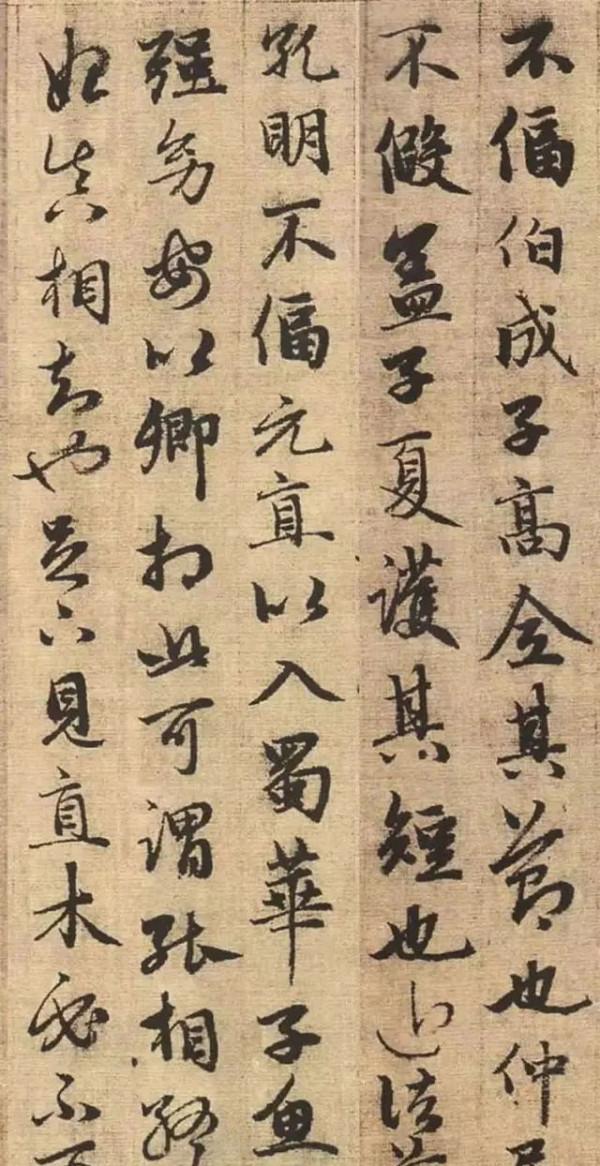 不偪伯成子高全其莭也仲
不假盖子夏護其短也近諸
孔明不偪元直以入蜀華子魚
强幼安以卿相此可謂能相終
始真相知也足下見直木必不